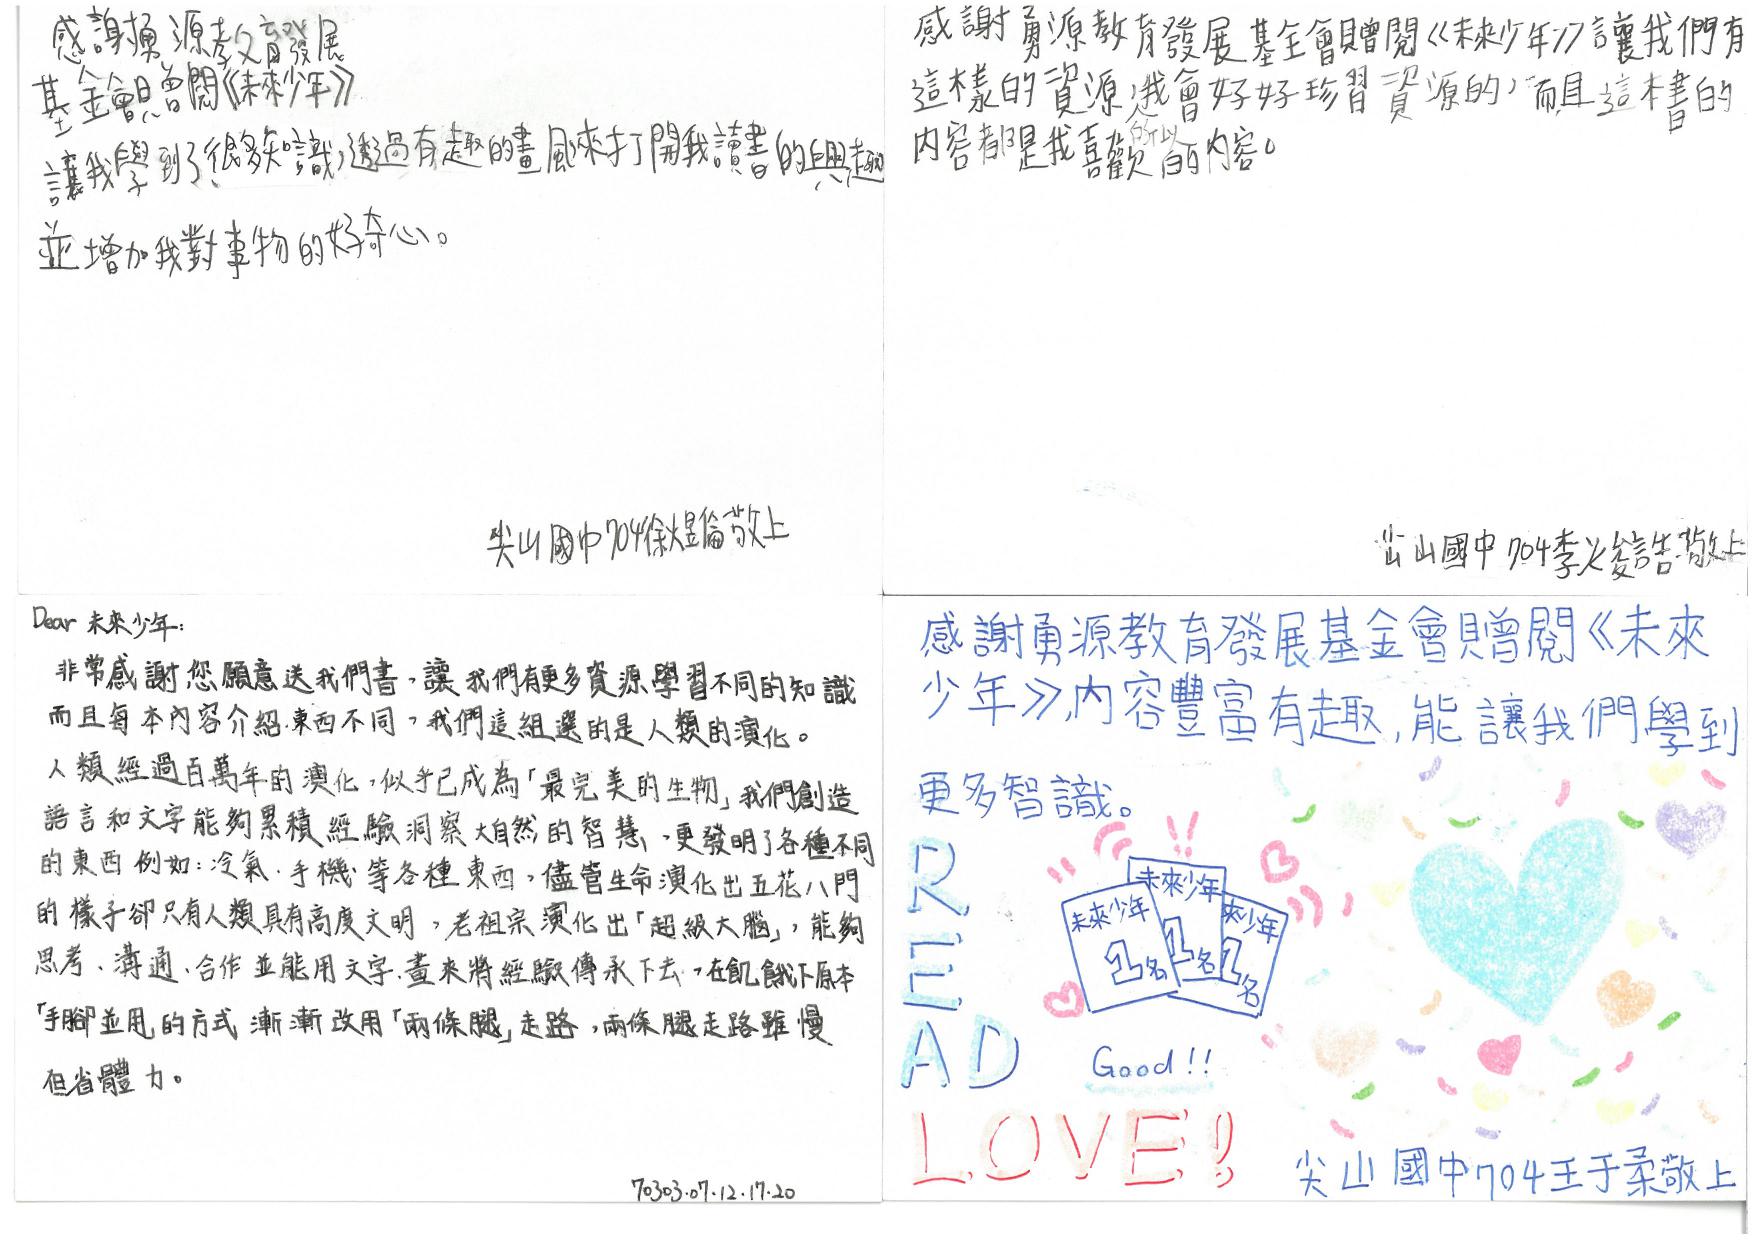 感謝勇源教育發展
基金會贈閱《未來少年》
讓我學到了很多知識,透過有趣的畫風來打開我讀書的興趣
並增加我對事物的好奇心。
尖山國中704徐煜倫敬上
感謝勇源教育發展基金會贈閱《未來少年》讓我們有
這樣的資源,我會好好珍習資源的,而且這本書的
所以
內容都是我喜歡的內容。
尖山國中704李俊誥敬上
Dear 未來少年:
非常感謝您願意送我們書,讓我們有更多資源學習不同的知識
而且每本內容介紹東西不同,我們這組選的是人類的演化。
人類經過百萬年的演化,似乎已成為「最完美的生物」我們創造
語言和文字能夠累積經驗洞察大自然的智慧,更發明了各種不同
的東西例如:冷氣、手機等各種東西,儘管生命演化出五花八門
的樣子卻只有人類具有高度文明,老祖宗演化出「超級大腦」,能夠
思考、溝通、合作並能用文字、畫來將經驗傳承下去,在飢餓下原本
「手腳並用」的方式漸漸改用「兩條腿」走路,兩條腿走路雖慢
但省體力。
70303.07.12.17.20
感謝勇源教育發展基金會贈閱《未來
少年》,內容豐富有趣,能讓我們學到
更多智識。
READ
未來少年
1名
未來少年
1名
來少年
1名
Good!!
LOVE!
尖山國中704王于柔敬上